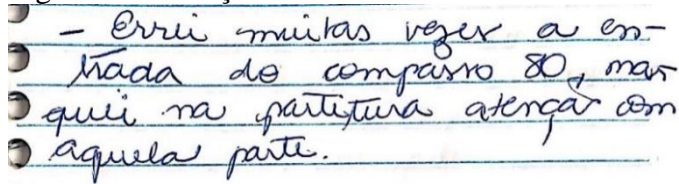 - Errei muitas vezes a en-
trada do compasso 80, mar
quei na partitura atenção com
aquela parte.